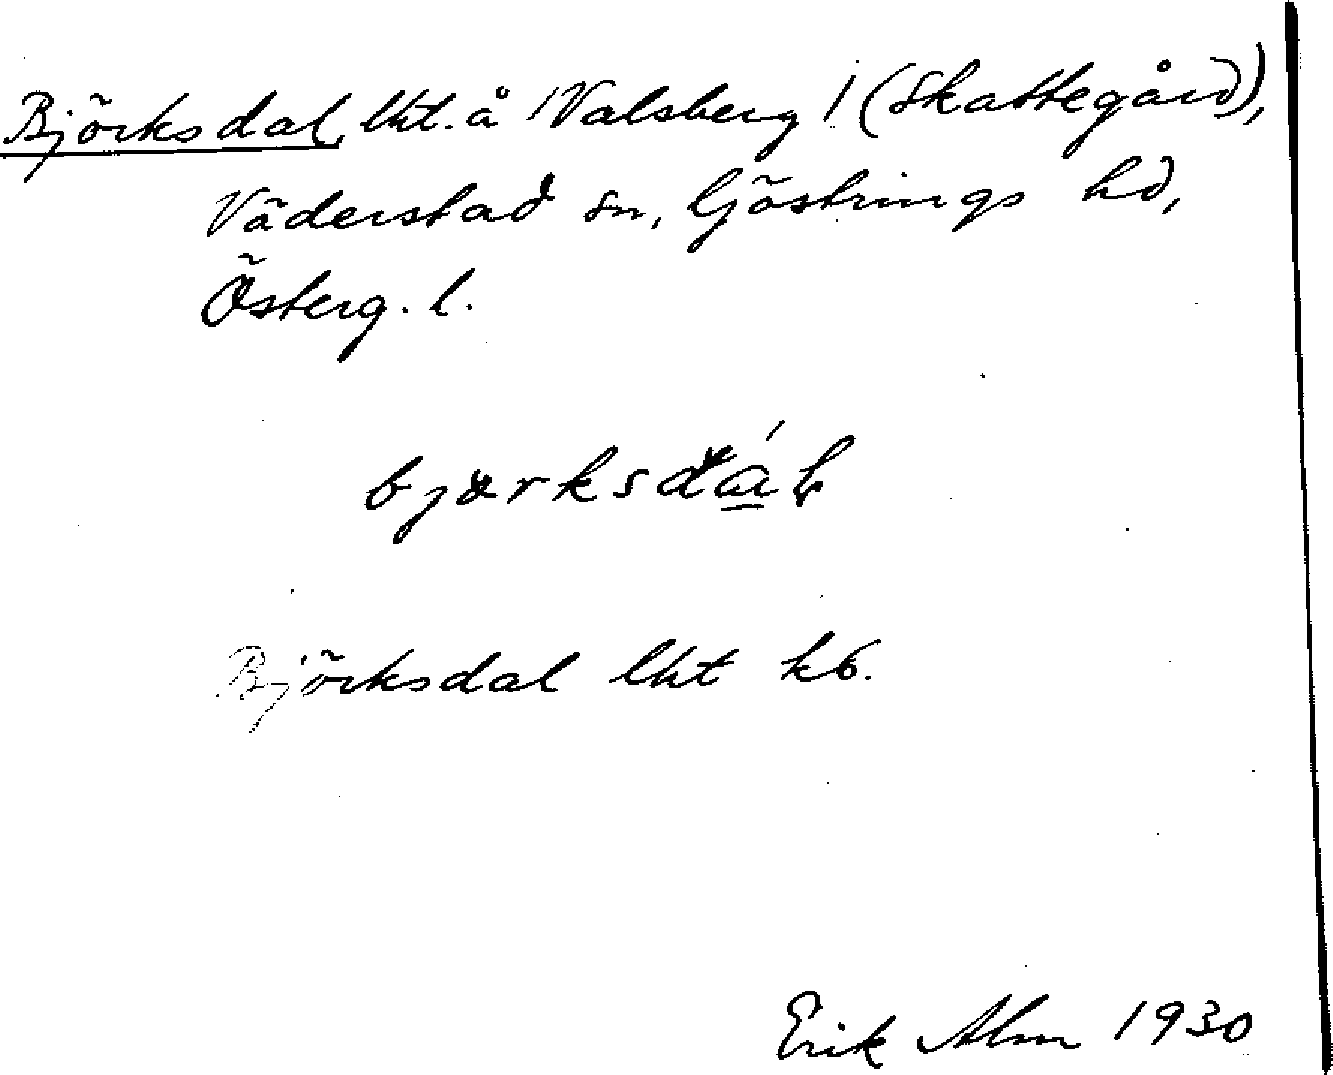 Björksdal, lht. å Valsberg 1 (Skattegård),
Väderstad sn, Göstrings hd,
Österg. l.
Björksdal lht kb.
Erik Alm 1930